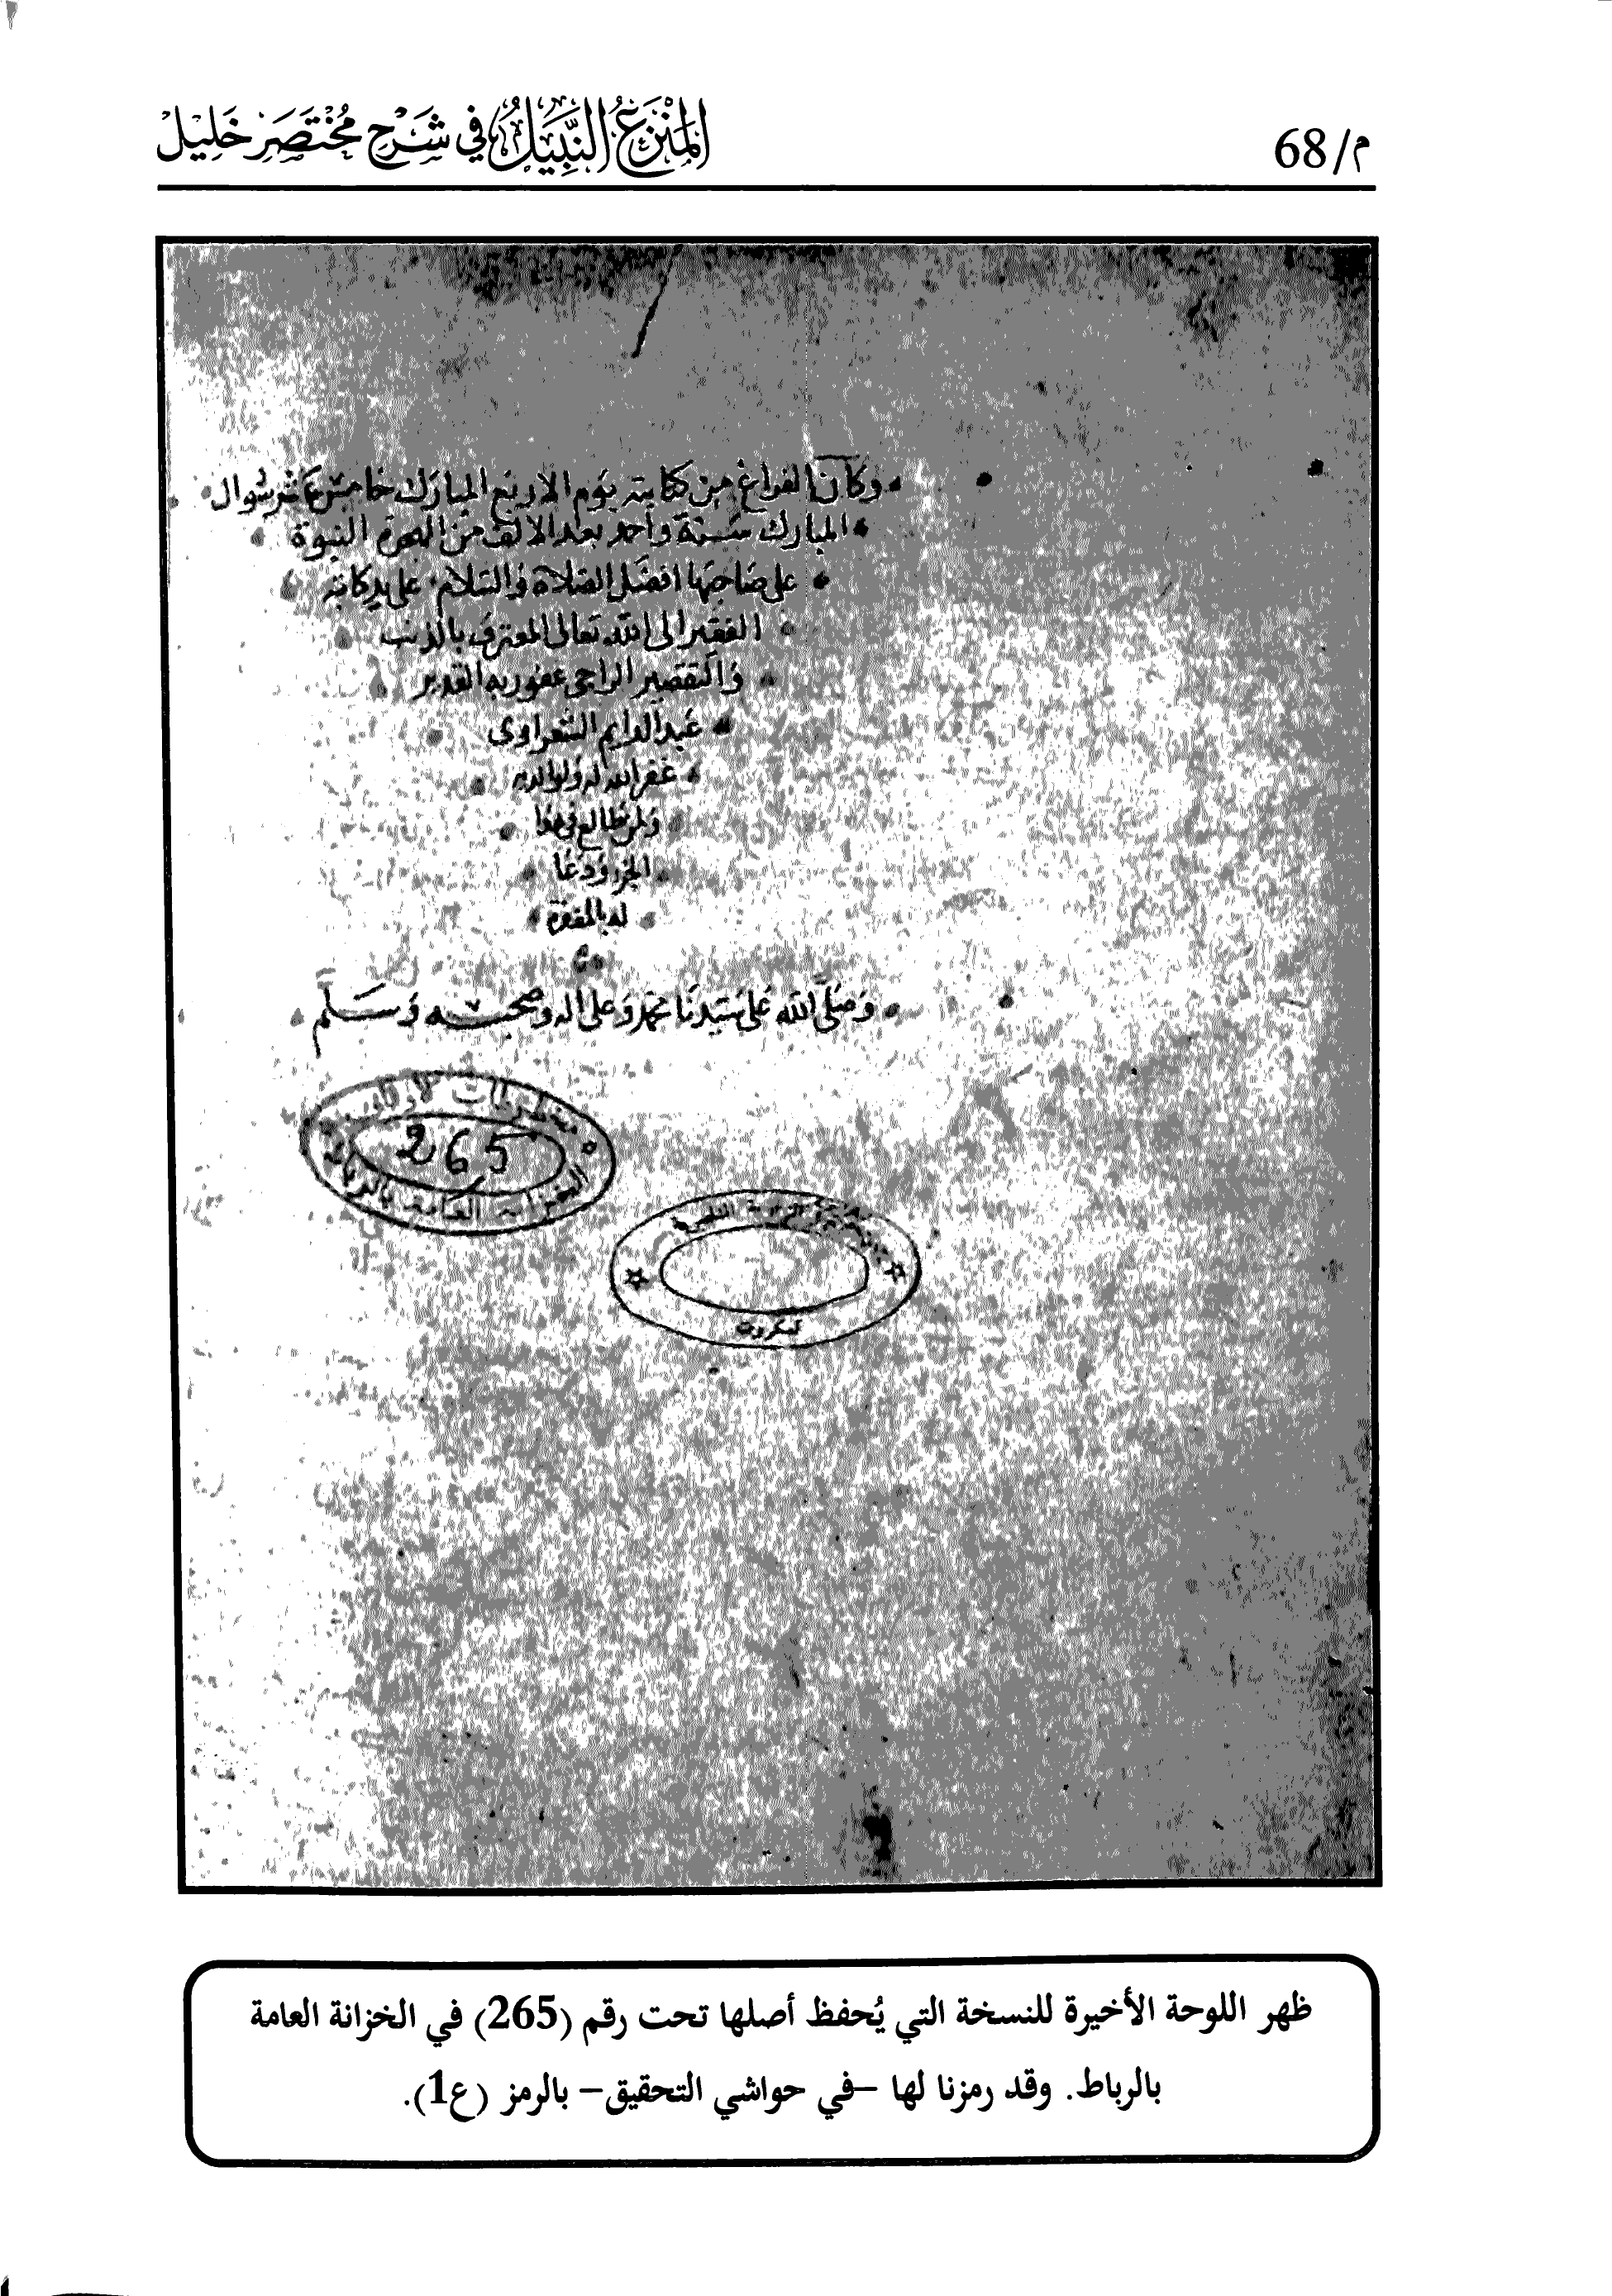 م/68
المَنْزَعُ النَّبِيلُ في شَرْحِ مُخْتَصَرِ خَلِيلْ
وكان الفراغ من كتابته يوم الاربع المبارك خامس عشر شوال
المبارك سنة واحد بعد الالف من الهجرة النبوة
على صاحبها افضل الصلاة والسلام على يد كاتبه
الفقير الى الله تعالى المعترف بالذنب
والتقصير الراجي عفو ربه القدير
عبد الدايم الشعراوى
غفر الله له ولوالديه
ولمن طالع في هذا
الجزء ودعا
له بالمغفرة
وصلى الله على سيدنا محمد وعلى اله وصحبه وسلم
265
الخزانة العامة بالرباط
الناصرية
تمكروت
ظهر اللوحة الأخيرة للنسخة التي يُحفظ أصلها تحت رقم (265) في الخزانة العامة
بالرباط. وقد رمزنا لها –في حواشي التحقيق– بالرمز (ع1).